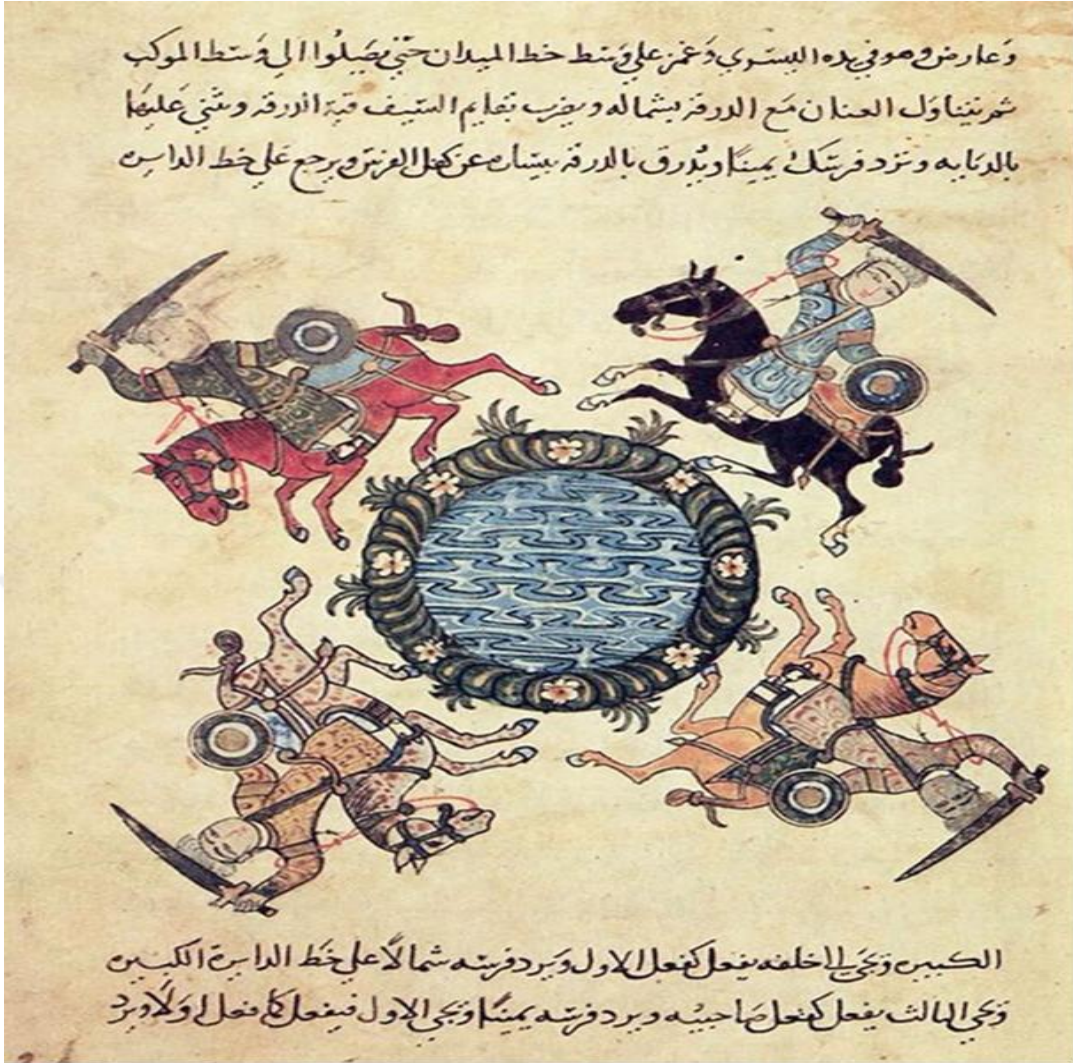 وعارض وهو في يده اليسري وغمز علي وسط خط الميدان حتي يصلوا الي وسط الموكب
ثم يتناول العنان مع الدرقة بشماله ويضرب بقايم السيف قبة الدرقة ويثني عليها
بالدبابه وترد فرسك يمينًا ويدرق بالدرقة بيساره عن كفل الفرس ويرجع علي خط الدايره
الكبيره ويجي خلفه يفعل كفعل الاول ويرد فرسه شمالًا علي خط الدايرة الكبيره
ويجي الثالث يفعل كفعل صاحبيه ويرد فرسه يمينًا ويجي الاول فيفعل كما فعل اولا ويرد